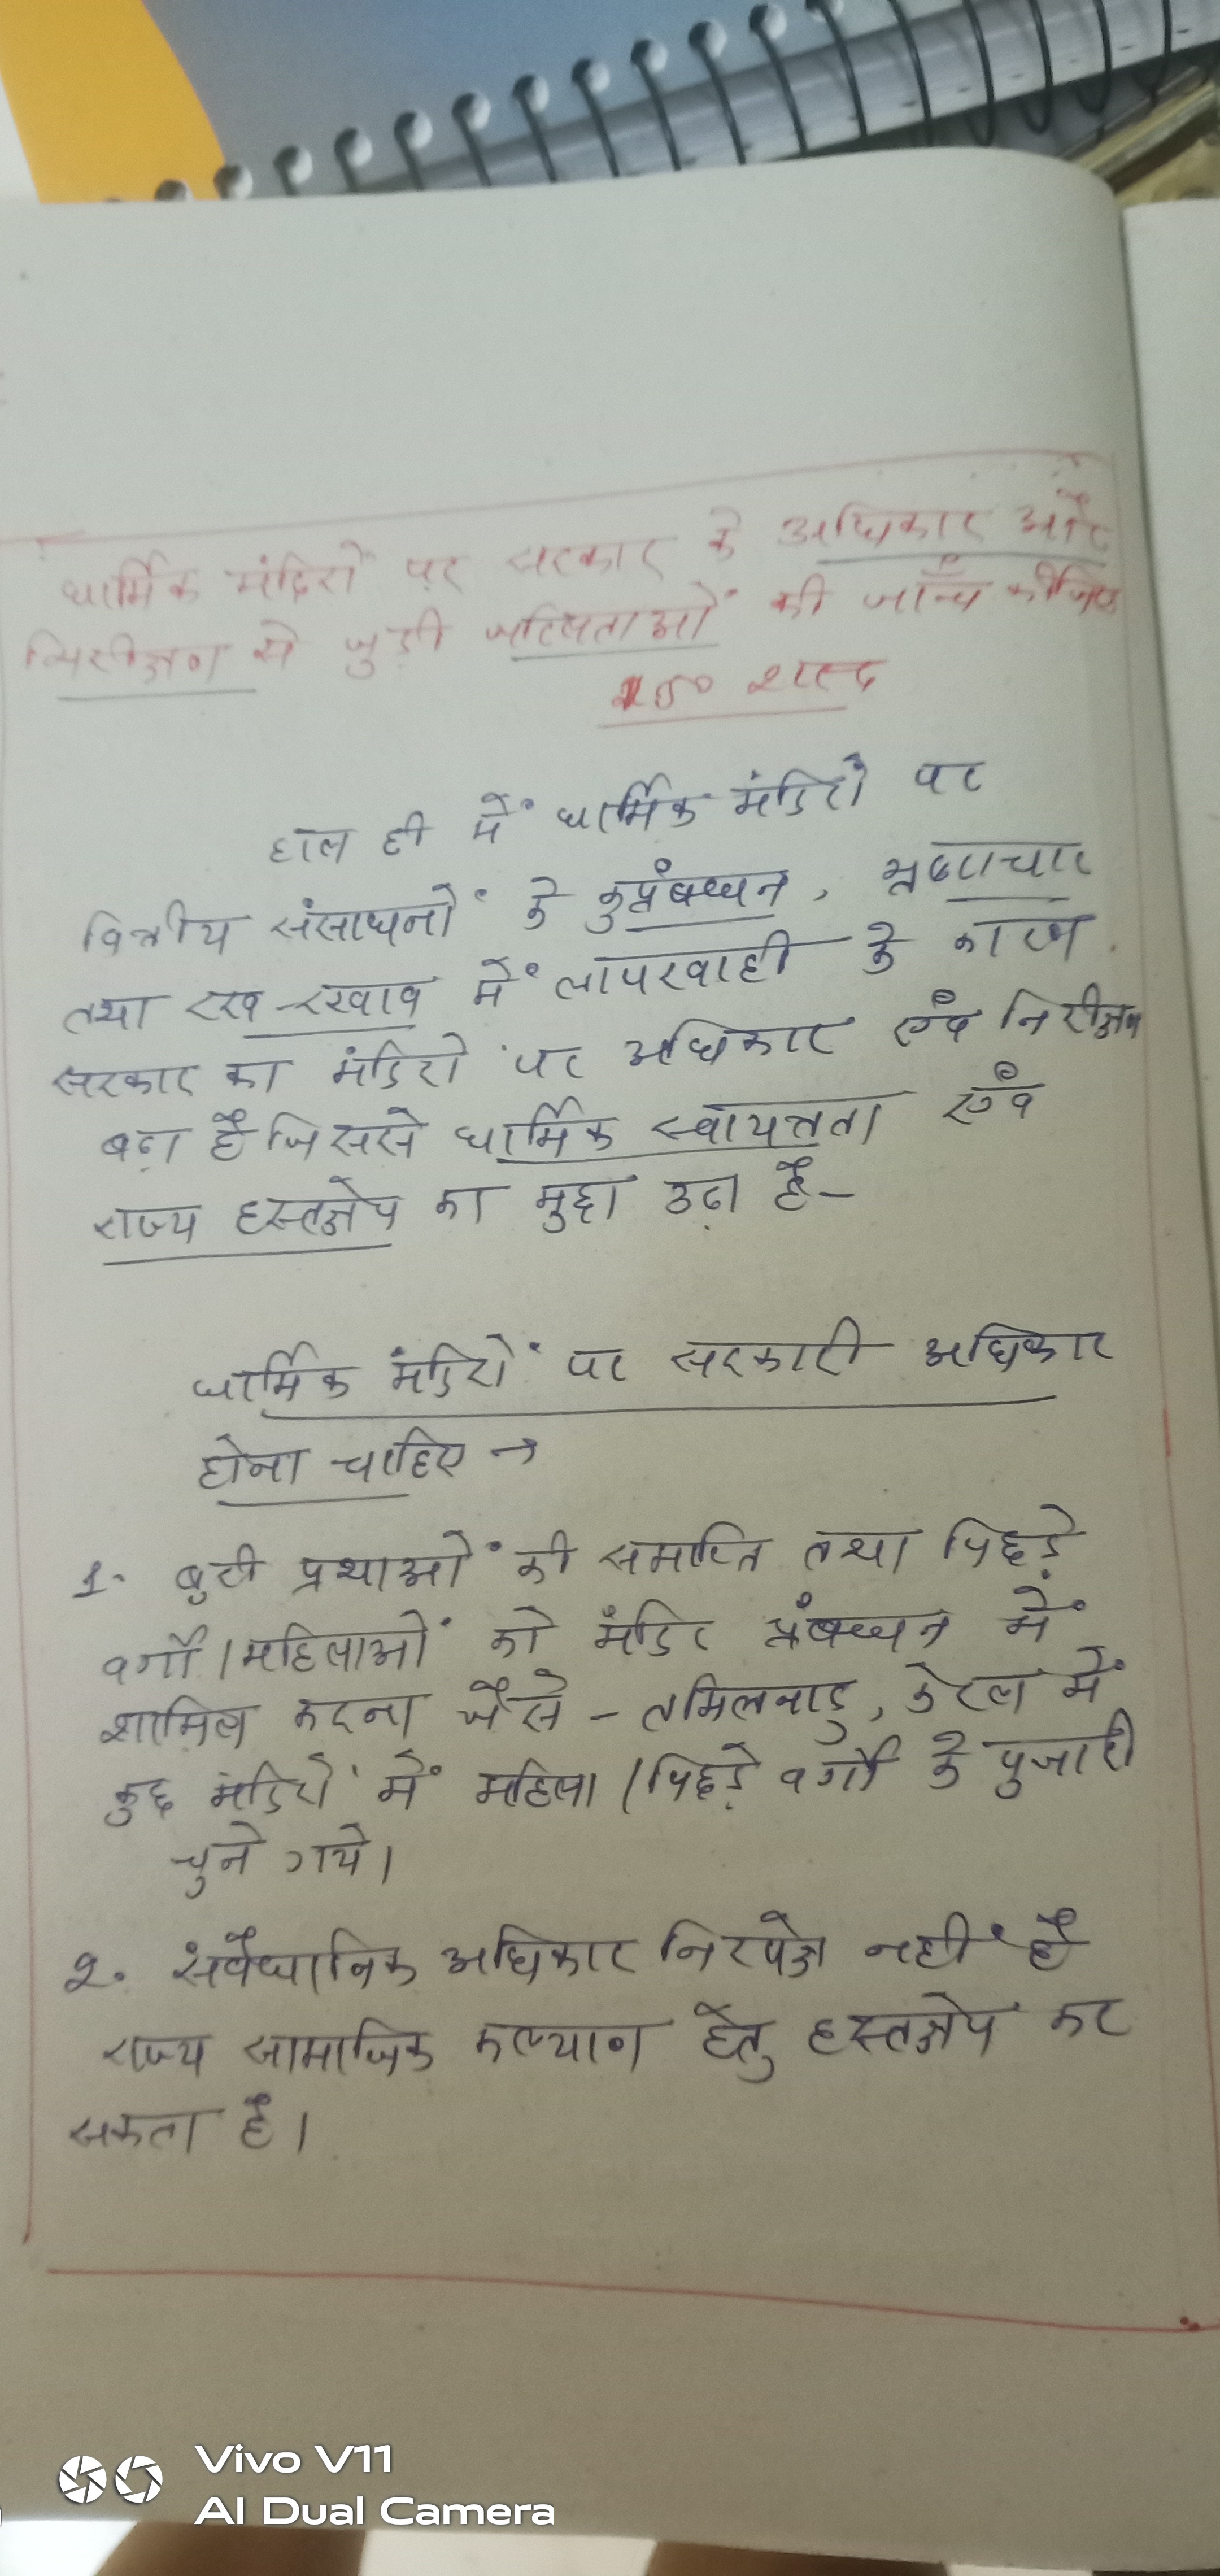 धार्मिक मंदिरों पर सरकार के अधिकार और
निरीक्षण से जुड़ी जटिलताओं की जाँच कीजिए
150 शब्द
हाल ही में धार्मिक मंदिरों पर
वित्तीय संसाधनों के कुप्रंबध्धन, भ्रष्टाचार
तथा रख-रखाव में लापरवाही के कारण
सरकार का मंदिरों पर अधिकार एंव निरीक्षण
बढ़ा है जिससे धार्मिक स्वायत्तता एंव
राज्य हस्तक्षेप का मुद्दा उठा है-
धार्मिक मंदिरों पर सरकारी अधिकार
होना चाहिए →
1. बुरी प्रथाओं की समाप्ति तथा पिछड़े
वर्गों/महिलाओं को मंदिर प्रंबध्धन में
शामिल करना जैसे - तमिलनाडु, केरल में
कुछ मंदिरों में महिला/पिछड़े वर्गों के पुजारी
चुने गये।
2. संवैधानिक अधिकार निरपेक्ष नहीं है
राज्य सामाजिक कल्याण हेतु हस्तक्षेप कर
सकता है।
Vivo V11
AI Dual Camera